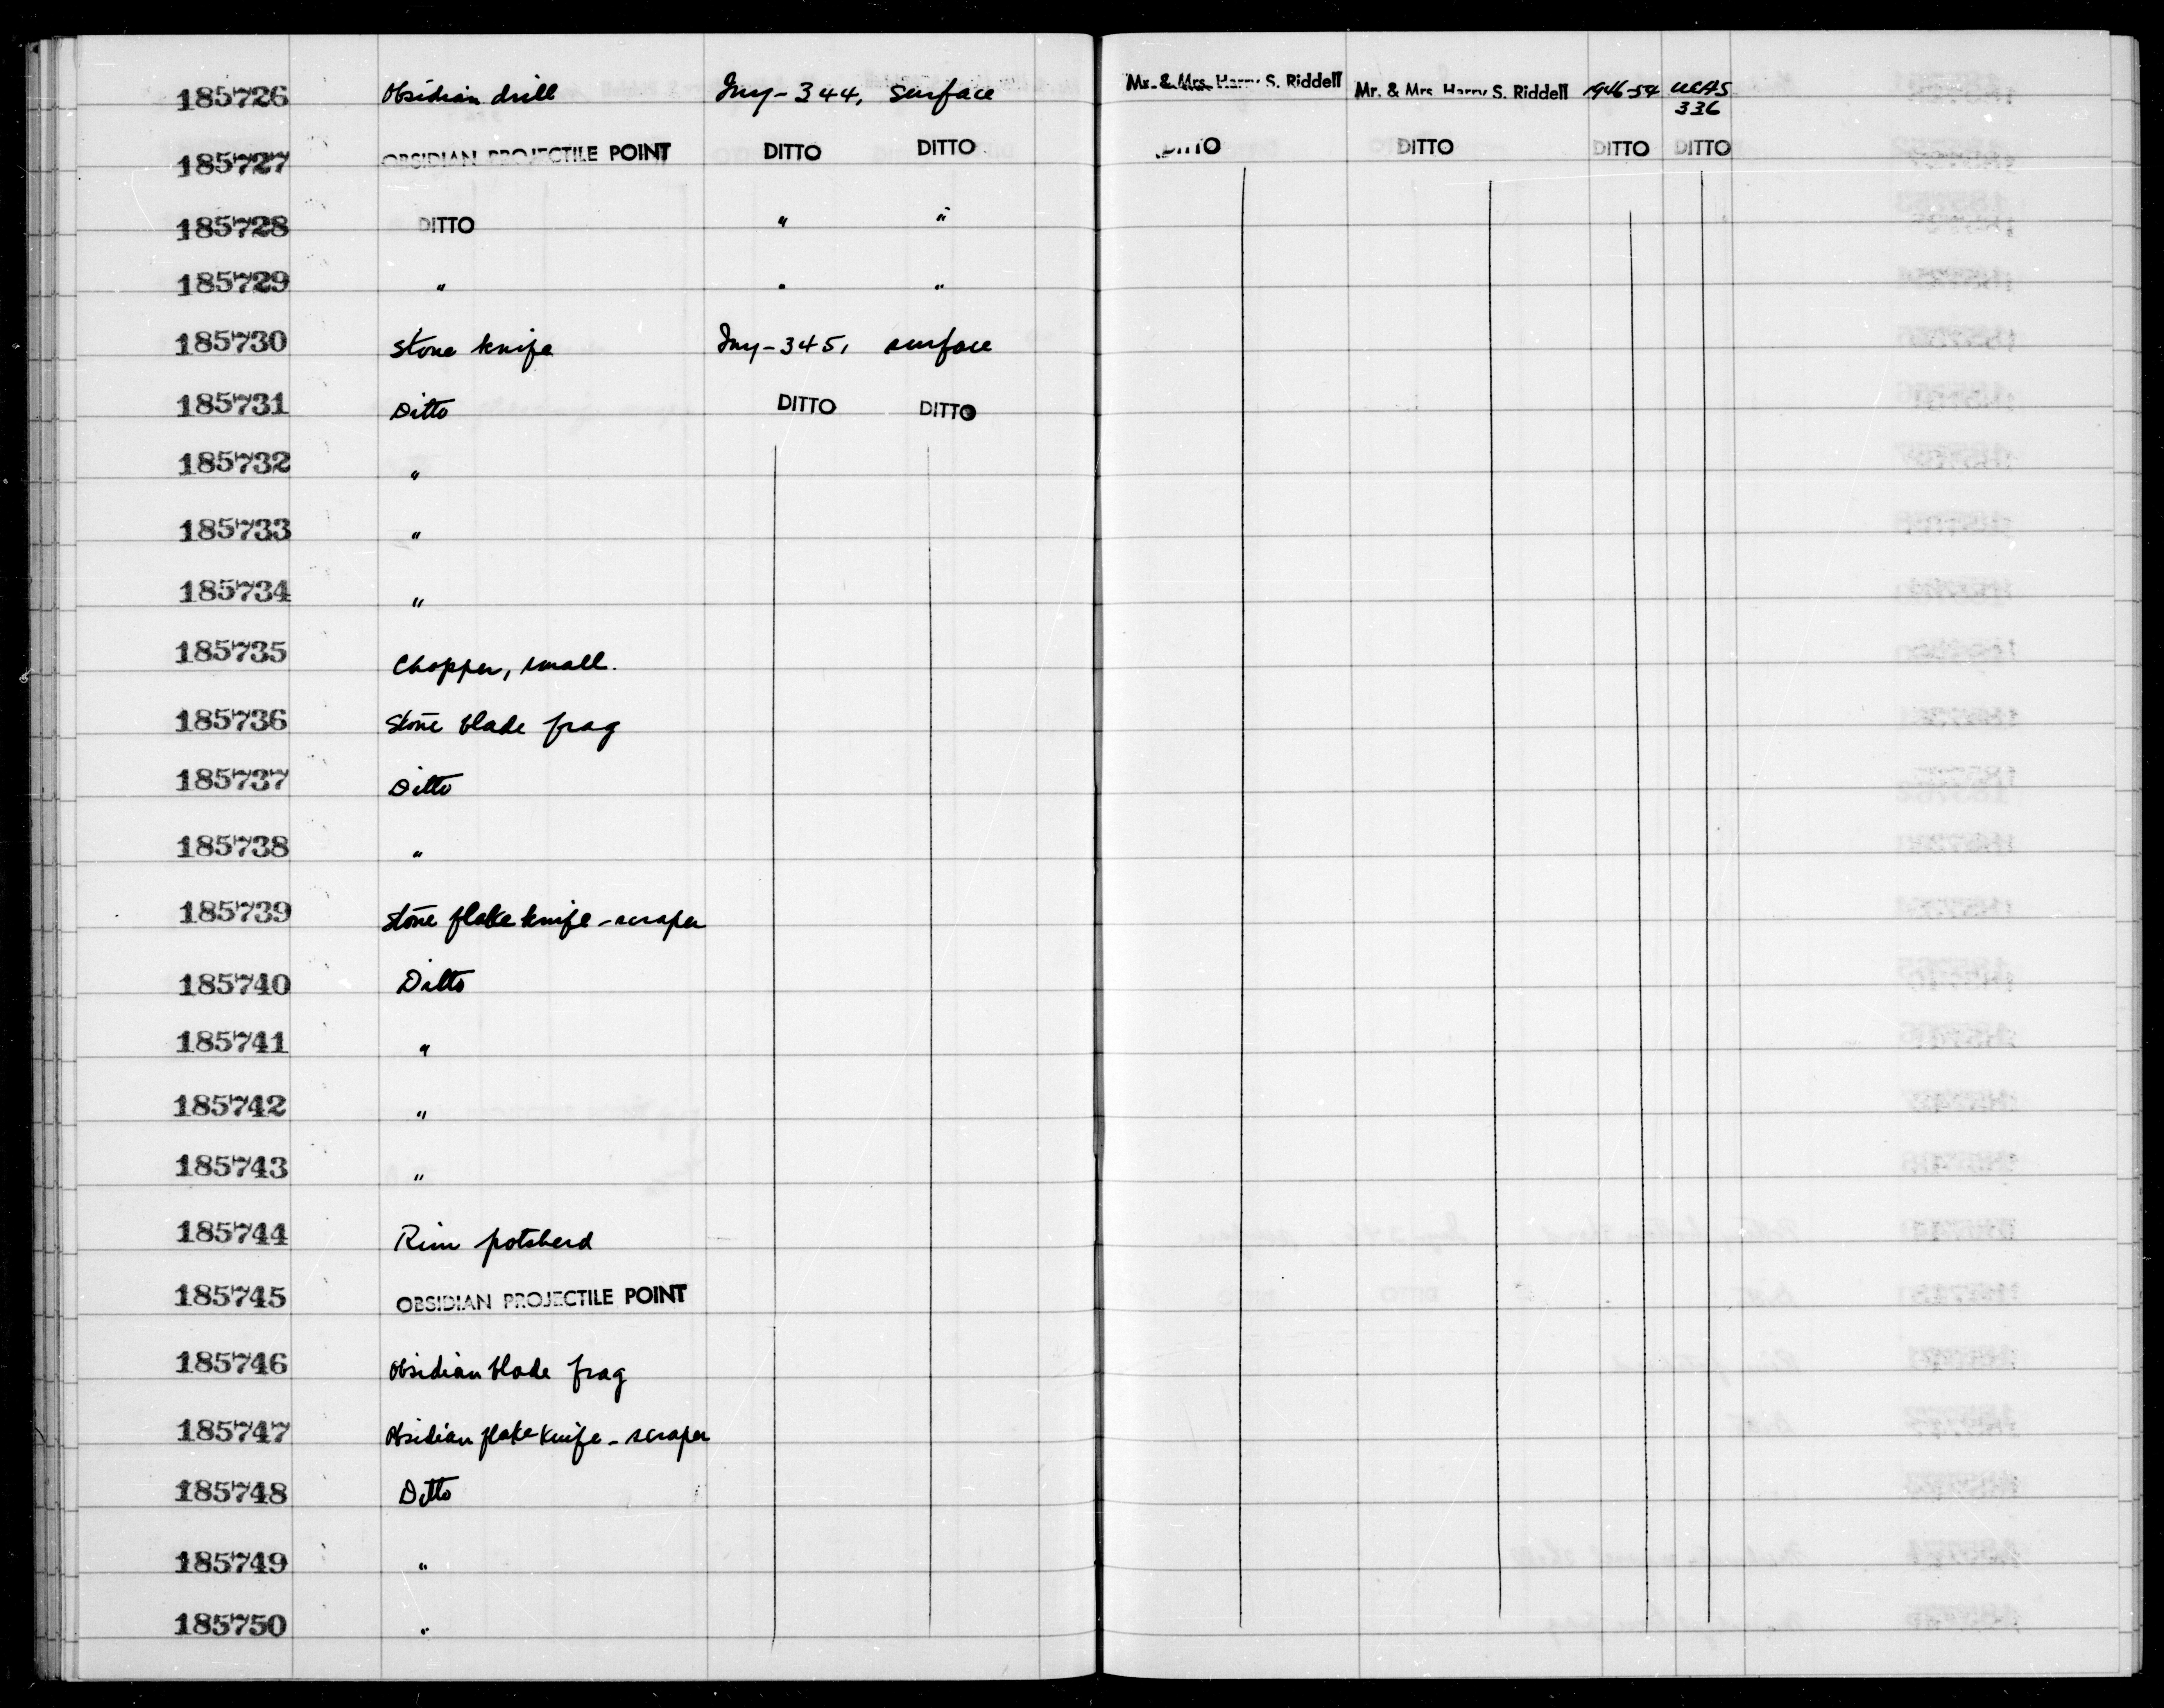 185726 Obsidian drill Iny-344, surface Mr. & Mrs. Harry S. Riddell Mr. & Mrs. Harry S. Riddell 1946-54 UCAS 336
185727 OBSIDIAN PROJECTILE POINT DITTO DITTO DITTO DITTO DITTO DITTO
185728 DITTO " "
185729 " " "
185730 Stone knife Iny-345, surface
185731 Ditto DITTO DITTO
185732 "
185733 "
185734 "
185735 Chopper, small.
185736 Stone blade frag
185737 Ditto
185738 "
185739 Stone flake knife-scraper
185740 Ditto
185741 "
185742 "
185743 "
185744 Rim potsherd
185745 OBSIDIAN PROJECTILE POINT
185746 Obsidian blade frag
185747 Obsidian flake knife-scraper
185748 Ditto
185749 "
185750 "